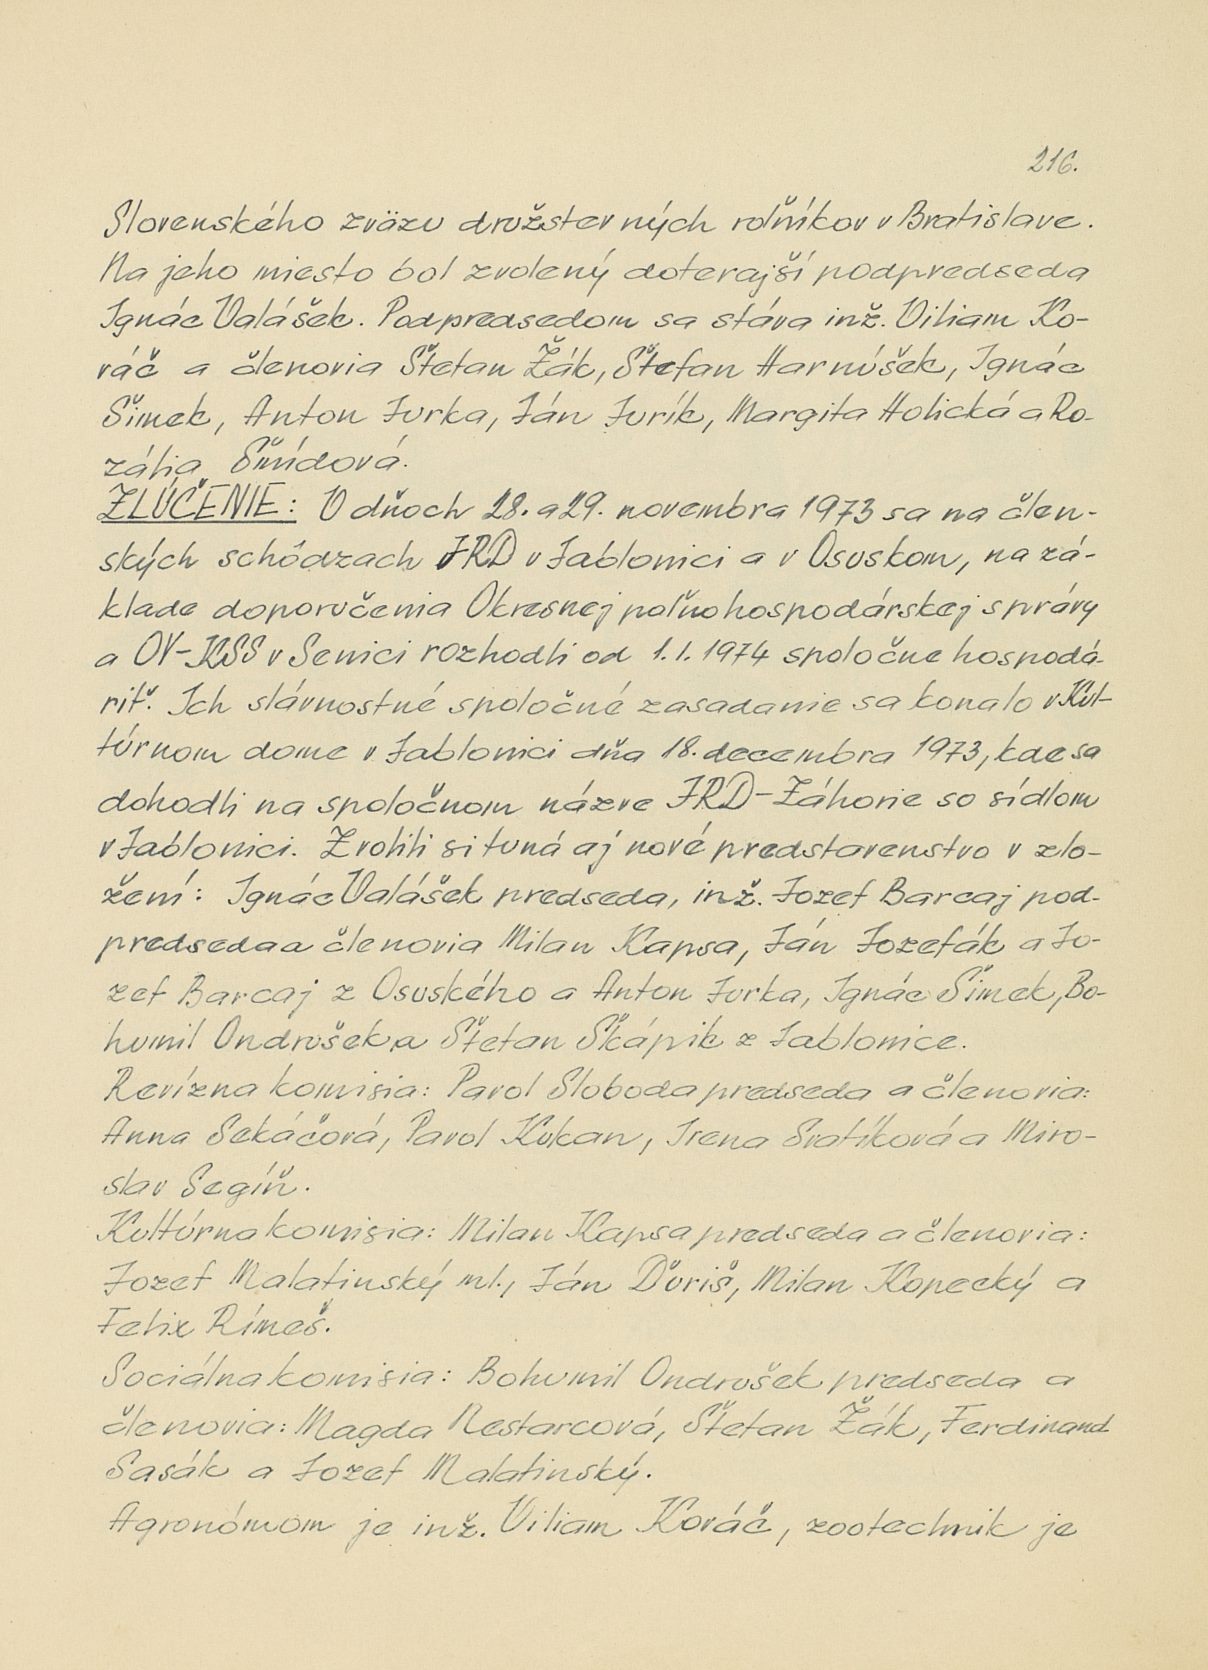 216.
Slovenského zväzu družstevných roľníkov v Bratislave.
Na jeho miesto bol zvolený doterajší podpredseda
Ignác Valášek. Podpredsedom sa stáva inž. Viliam Ko-
váč a členovia Štefan Žák, Štefan Harnúšek, Ignác
Šimek, Anton Jurka, Ján Jurík, Margita Holická a Ro-
zália Šmídová.
ZLÚČENIE: V dňoch 28. a 29. novembra 1973 sa na člen-
ských schôdzach JRD v Jablonici a v Osuskom, na zá-
klade doporučenia Okresnej poľnohospodárskej správy
a OV-KSS v Senici rozhodli od 1.1.1974 spoločne hospodá-
riť. Ich slávnostné spoločné zasadanie sa konalo v Kul-
túrnom dome v Jablonici dňa 18. decembra 1973, kde sa
dohodli na spoločnom názve JRD-Záhorie so sídlom
v Jablonici. Zvolili si tuná aj nové predstavenstvo v zlo-
žení: Ignác Valášek predseda, inž. Jozef Barcaj pod-
predseda a členovia Milan Kapsa, Ján Jozefák a Jo-
zef Barcaj z Osuského a Anton Jurka, Ignác Šimek, Bo-
humil Ondrušek a Štefan Škápik z Jablonice.
Revízna komisia: Pavol Sloboda predseda a členovia:
Anna Sekáčová, Pavol Kukan, Irena Svatíková a Miro-
slav Segíň.
Kultúrna komisia: Milan Kapsa predseda a členovia:
Jozef Malatinský ml., Ján Ďuriš, Milan Kopecký a
Felix Rímeš.
Sociálna komisia: Bohumil Ondrušek predseda a
členovia: Magda Nestarcová, Štefan Žák, Ferdinand
Sasák a Jozef Malatinský.
Agronómom je inž. Viliam Kováč, zootechnik je